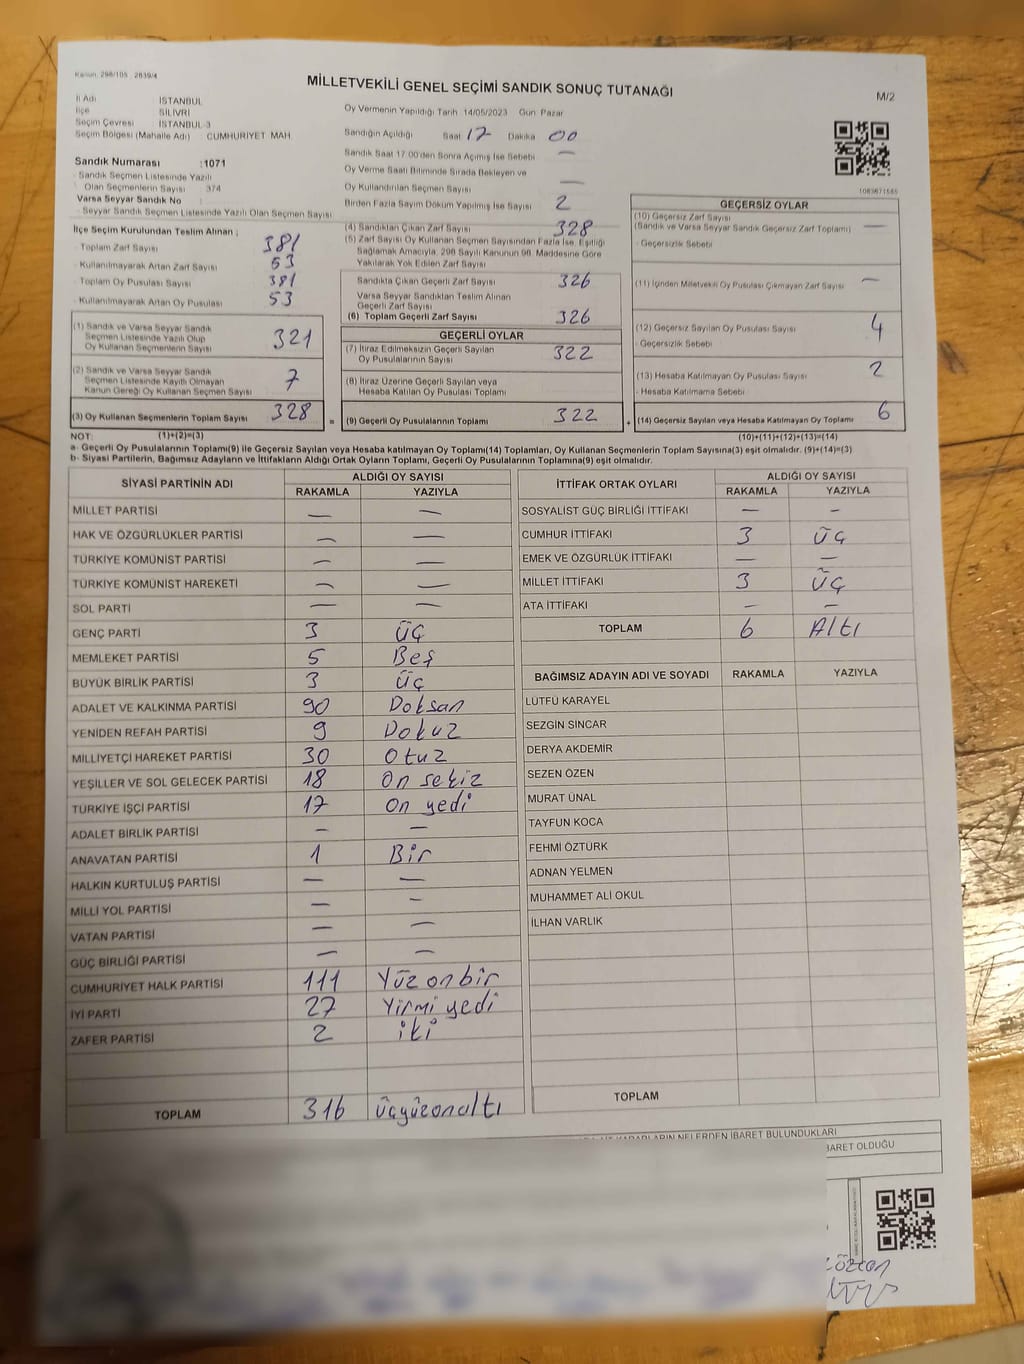 Kanun: 298/105 2839/4
MİLLETVEKİLİ GENEL SEÇİMİ SANDIK SONUÇ TUTANAĞI
M/2
İl Adı : İSTANBUL
İlçe : SİLİVRİ
Seçim Çevresi : İSTANBUL-3
Seçim Bölgesi (Mahalle Adı) : CUMHURİYET MAH
Sandık Numarası : 1071
- Sandık Seçmen Listesinde Yazılı
Olan Seçmenlerin Sayısı : 374
Varsa Seyyar Sandık No :
- Seyyar Sandık Seçmen Listesinde Yazılı Olan Seçmen Sayısı :
Oy Vermenin Yapıldığı Tarih 14/05/2023 Gün Pazar
Sandığın Açıldığı Saat 17 Dakika 00
Sandık Saat 17.00'den Sonra Açılmış İse Sebebi —
Oy Verme Saati Bitiminde Sırada Bekleyen ve
Oy Kullandırılan Seçmen Sayısı —
Birden Fazla Sayım Döküm Yapılmış İse Sayısı 2
1083671565
İlçe Seçim Kurulundan Teslim Alınan ;
- Toplam Zarf Sayısı 381
- Kullanılmayarak Artan Zarf Sayısı 53
- Toplam Oy Pusulası Sayısı 381
- Kullanılmayarak Artan Oy Pusulası 53
(1) Sandık ve Varsa Seyyar Sandık
Seçmen Listesinde Yazılı Olup
Oy Kullanan Seçmenlerin Sayısı 321
(2) Sandık ve Varsa Seyyar Sandık
Seçmen Listesinde Kayıtlı Olmayan
Kanun Gereği Oy Kullanan Seçmen Sayısı 7
(3) Oy Kullanan Seçmenlerin Toplam Sayısı 328 =
(4) Sandıktan Çıkan Zarf Sayısı 328
(5) Zarf Sayısı Oy Kullanan Seçmen Sayısından Fazla İse, Eşitliği
Sağlamak Amacıyla, 298 Sayılı Kanunun 98. Maddesine Göre
Yakılarak Yok Edilen Zarf Sayısı
Sandıkta Çıkan Geçerli Zarf Sayısı 326
Varsa Seyyar Sandıktan Teslim Alınan
Geçerli Zarf Sayısı
(6) Toplam Geçerli Zarf Sayısı 326
GEÇERLİ OYLAR
(7) İtiraz Edilmeksizin Geçerli Sayılan
Oy Pusulalarının Sayısı 322
(8) İtiraz Üzerine Geçerli Sayılan veya
Hesaba Katılan Oy Pusulası Toplamı
(9) Geçerli Oy Pusulalarının Toplamı 322 +
GEÇERSİZ OYLAR
(10) Geçersiz Zarf Sayısı
(Sandık ve Varsa Seyyar Sandık Geçersiz Zarf Toplamı) —
- Geçersizlik Sebebi
(11) İçinden Milletvekili Oy Pusulası Çıkmayan Zarf Sayısı —
(12) Geçersiz Sayılan Oy Pusulası Sayısı 4
- Geçersizlik Sebebi
(13) Hesaba Katılmayan Oy Pusulası Sayısı 2
- Hesaba Katılmama Sebebi
(14) Geçersiz Sayılan veya Hesaba Katılmayan Oy Toplamı 6
NOT: (1)+(2)=(3)
(10)+(11)+(12)+(13)=(14)
a- Geçerli Oy Pusulalarının Toplamı(9) ile Geçersiz Sayılan veya Hesaba katılmayan Oy Toplamı(14) Toplamları, Oy Kullanan Seçmenlerin Toplam Sayısına(3) eşit olmalıdır. (9)+(14)=(3)
b- Siyasi Partilerin, Bağımsız Adayların ve İttifakların Aldığı Ortak Oyların Toplamı, Geçerli Oy Pusulalarının Toplamına(9) eşit olmalıdır.
SİYASİ PARTİNİN ADI ALDIĞI OY SAYISI
RAKAMLA YAZIYLA
MİLLET PARTİSİ — —
HAK VE ÖZGÜRLÜKLER PARTİSİ — —
TÜRKİYE KOMÜNİST PARTİSİ — —
TÜRKİYE KOMÜNİST HAREKETİ — —
SOL PARTİ — —
GENÇ PARTİ 3 ÜÇ
MEMLEKET PARTİSİ 5 Beş
BÜYÜK BİRLİK PARTİSİ 3 Üç
ADALET VE KALKINMA PARTİSİ 90 Doksan
YENİDEN REFAH PARTİSİ 9 Dokuz
MİLLİYETÇİ HAREKET PARTİSİ 30 Otuz
YEŞİLLER VE SOL GELECEK PARTİSİ 18 On sekiz
TÜRKİYE İŞÇİ PARTİSİ 17 On yedi
ADALET BİRLİK PARTİSİ — —
ANAVATAN PARTİSİ 1 Bir
HALKIN KURTULUŞ PARTİSİ — —
MİLLİ YOL PARTİSİ — —
VATAN PARTİSİ — —
GÜÇ BİRLİĞİ PARTİSİ — —
CUMHURİYET HALK PARTİSİ 111 Yüz onbir
İYİ PARTİ 27 Yirmi yedi
ZAFER PARTİSİ 2 iki
TOPLAM 316 üçyüzonaltı
İTTİFAK ORTAK OYLARI ALDIĞI OY SAYISI
RAKAMLA YAZIYLA
SOSYALİST GÜÇ BİRLİĞİ İTTİFAKI — —
CUMHUR İTTİFAKI 3 ÜÇ
EMEK VE ÖZGÜRLÜK İTTİFAKI — —
MİLLET İTTİFAKI 3 ÜÇ
ATA İTTİFAKI — —
TOPLAM 6 Altı
BAĞIMSIZ ADAYIN ADI VE SOYADI RAKAMLA YAZIYLA
LÜTFÜ KARAYEL
SEZGİN SİNCAR
DERYA AKDEMİR
SEZEN ÖZEN
MURAT ÜNAL
TAYFUN KOCA
FEHMİ ÖZTÜRK
ADNAN YELMEN
MUHAMMET ALİ OKUL
İLHAN VARLIK
TOPLAM
KARARLARIN NELERDEN İBARET BULUNDUKLARI
BARET OLDUĞU
Özcan